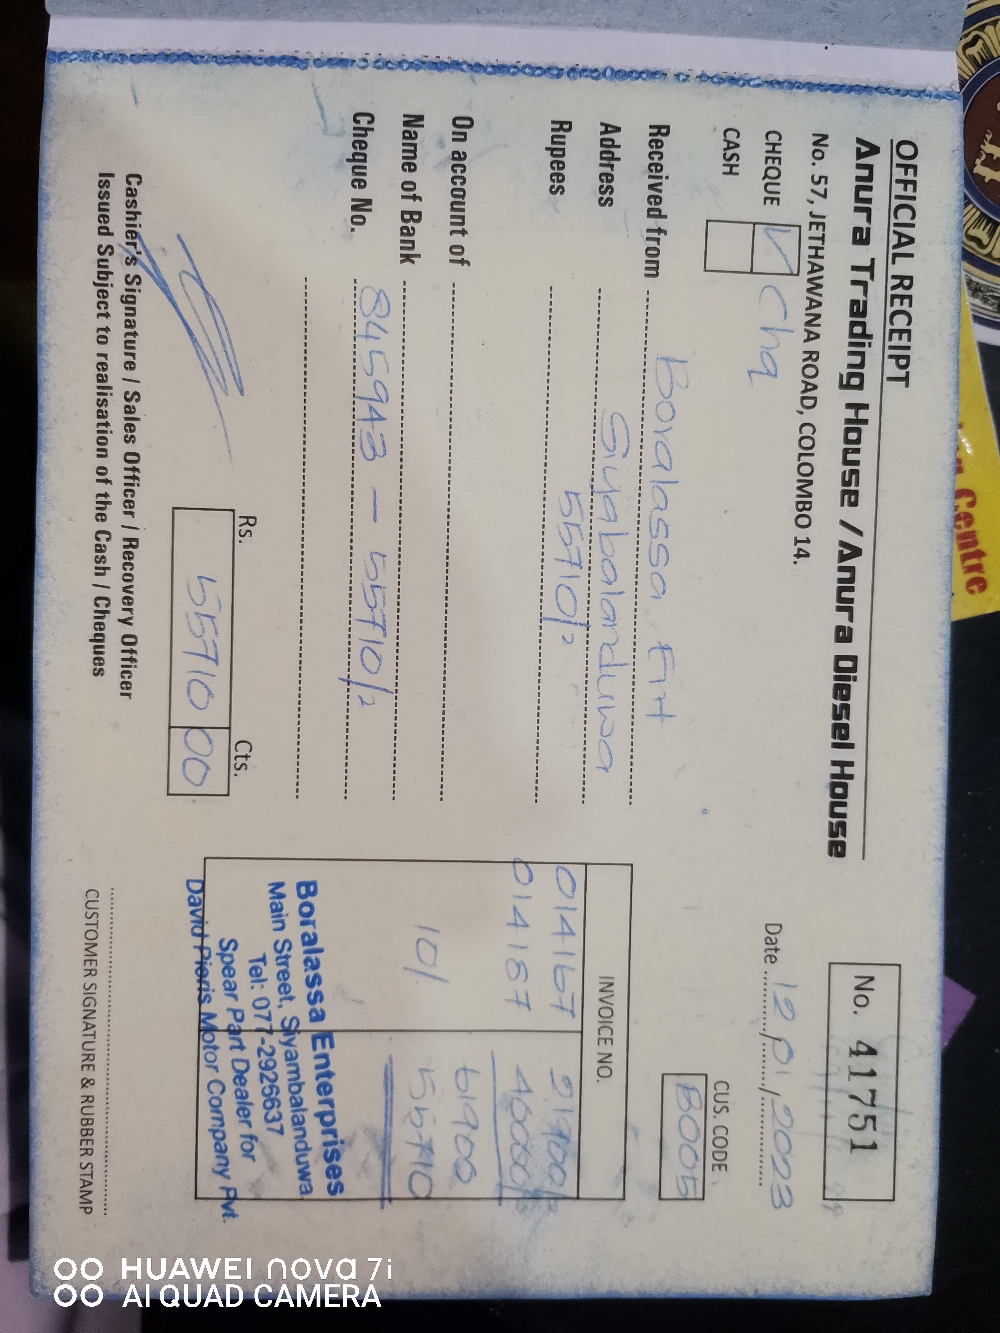 OFFICIAL RECEIPT
Anura Trading House /Anura Diesel House
No. 57, JETHAWANA ROAD, COLOMBO 14.
No. 41751
CHEQUE ✓ Chq
CASH
Date 12/01/2023
CUS. CODE
B005
Received from Boralassa Ent
Address Siyabalanduwa
Rupees 55710/=
On account of
Name of Bank
Cheque No. 845943 - 55710/=
INVOICE NO.
014167 21900/=
014187 40000/=
61900
10% 55710
Boralassa Enterprises
Main Street, Siyambalanduwa
Tel: 077-2926637
Spear Part Dealer for
David Pieris Motor Company Pvt.
Rs. Cts.
55710 00
Cashier's Signature / Sales Officer / Recovery Officer
Issued Subject to realisation of the Cash / Cheques
CUSTOMER SIGNATURE & RUBBER STAMP
Centre
HUAWEI nova 7i
AI QUAD CAMERA